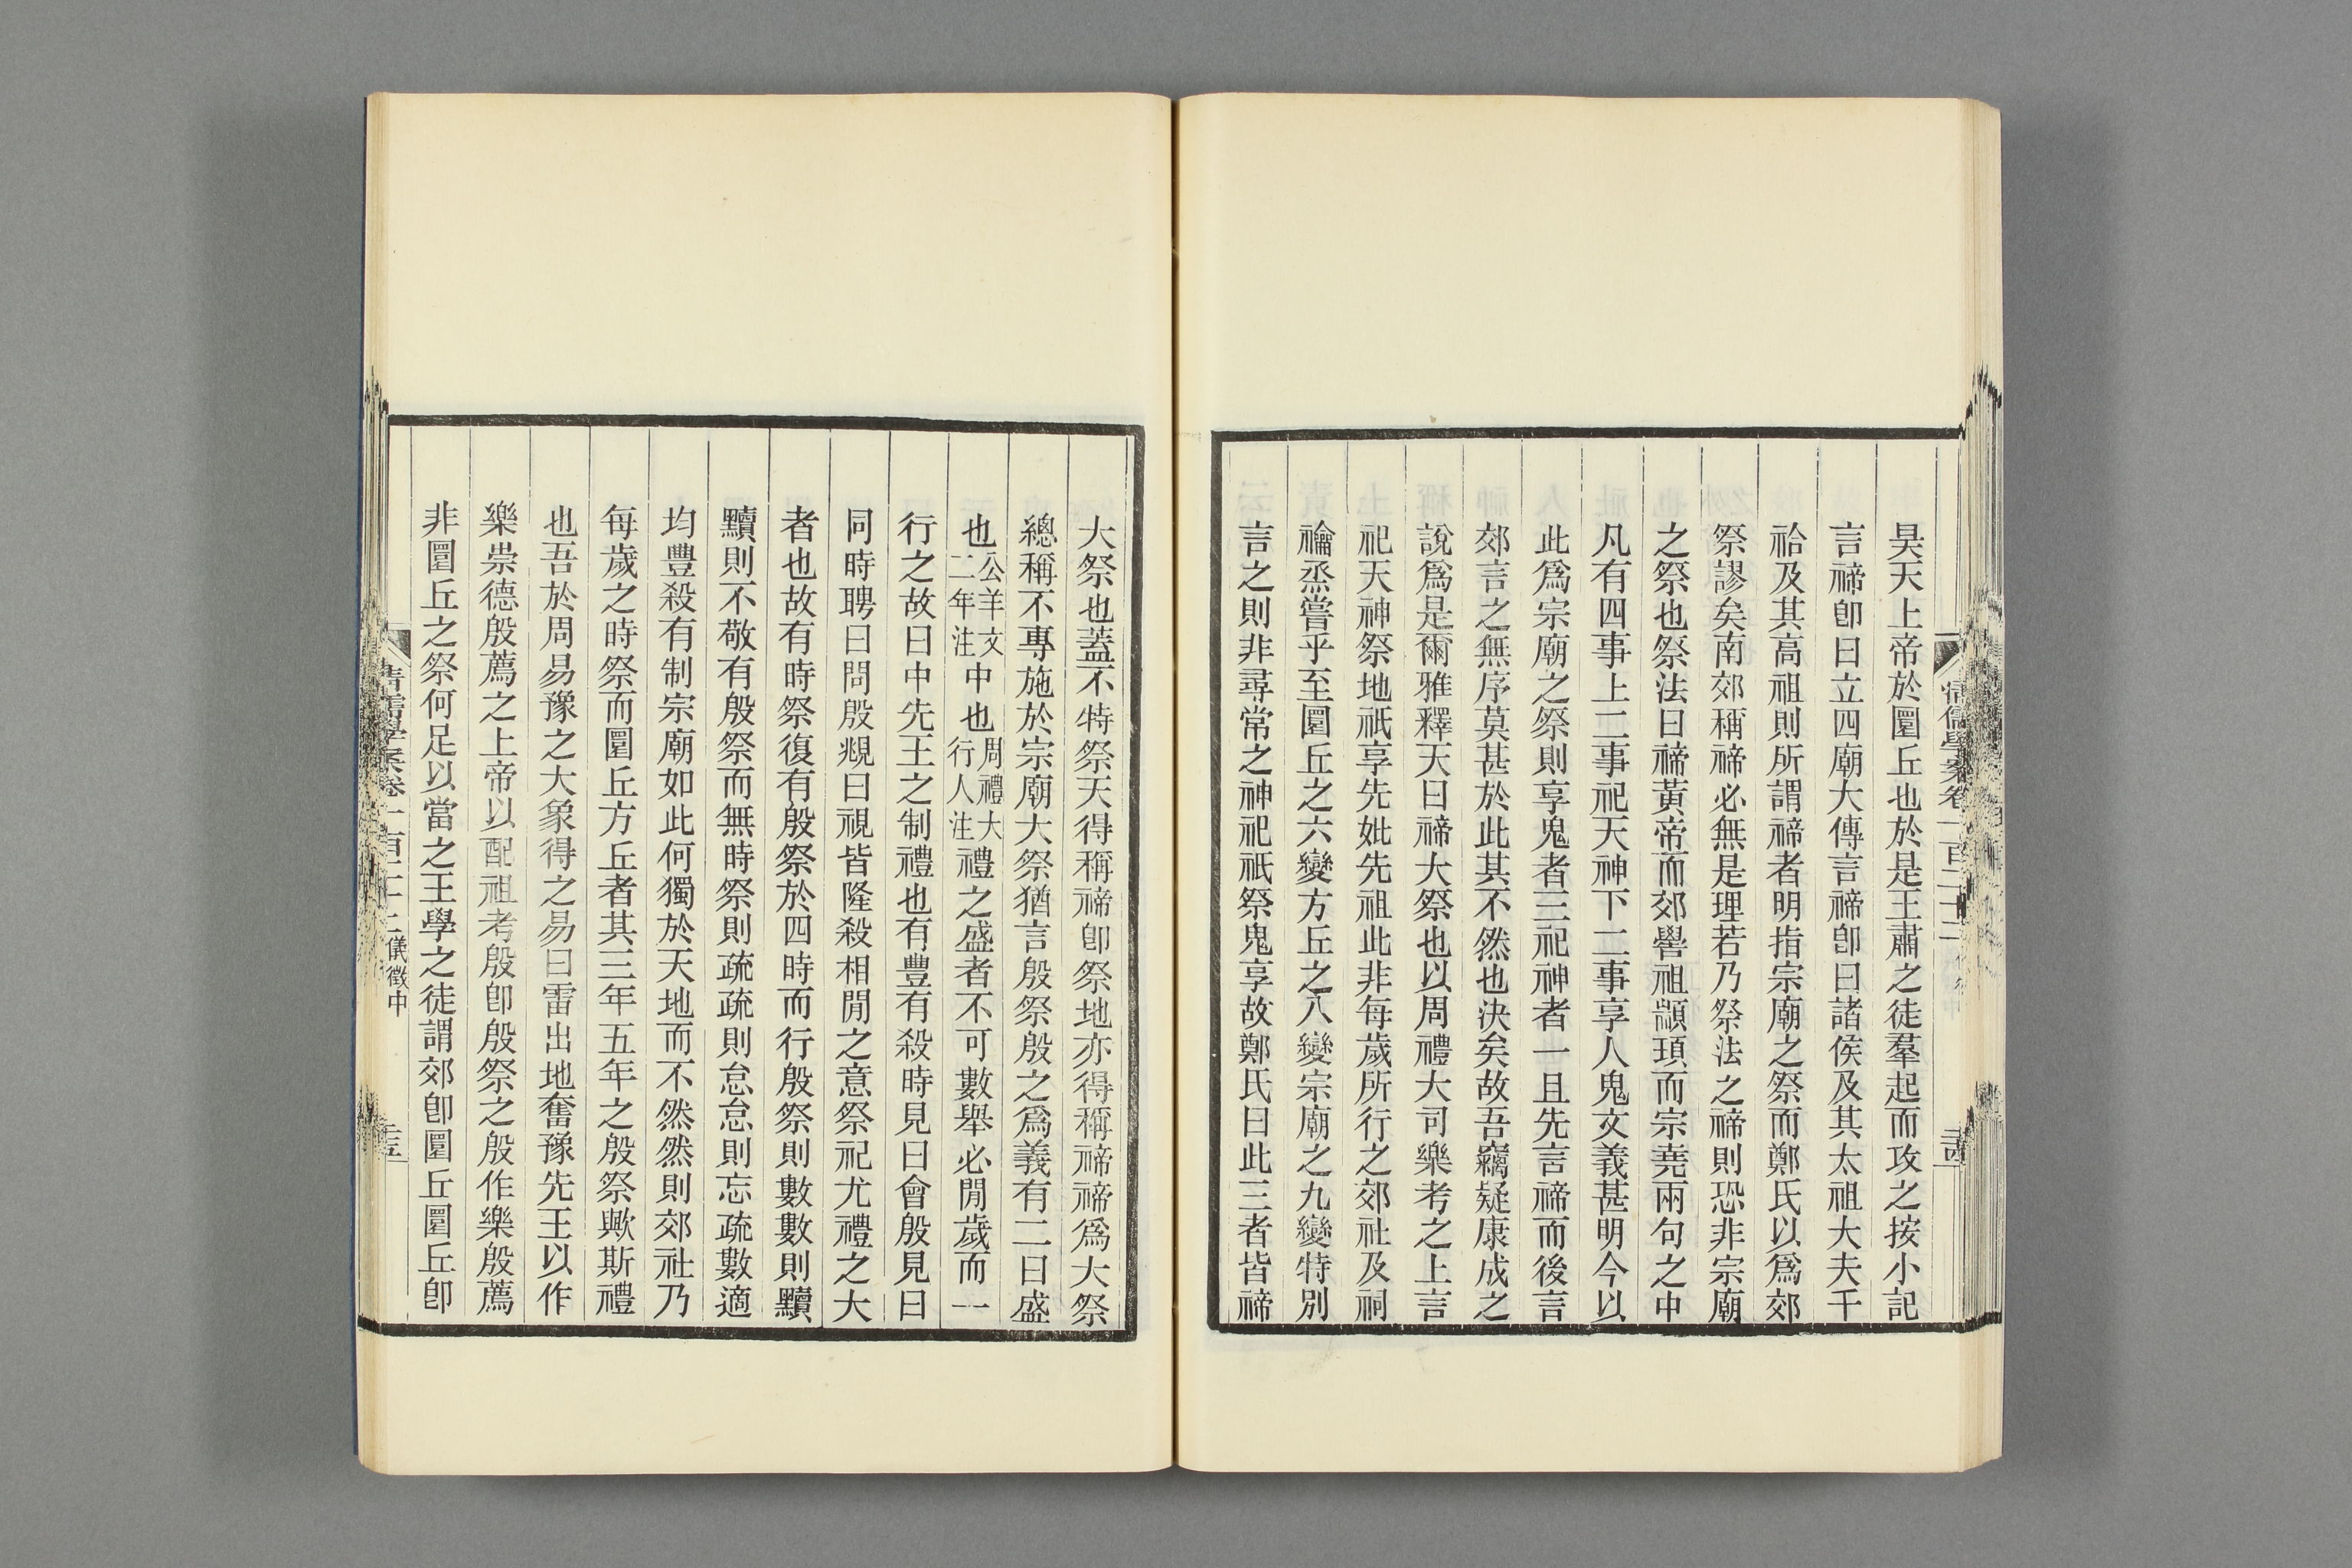 昊天上帝於圜丘也於是王肅之徒羣起而攻之按小記
言禘卽曰立四廟大傳言禘卽曰諸侯及其太祖大夫干
祫及其高祖則所謂禘者明指宗廟之祭而鄭氏以爲郊
祭謬矣南郊稱禘必無是理若乃祭法之禘則恐非宗廟
之祭也祭法曰禘黃帝而郊嚳祖顓頊而宗堯兩句之中
凡有四事上二事祀天神下二事享人鬼文義甚明今以
此爲宗廟之祭則享鬼者三祀神者一且先言禘而後言
郊言之無序莫甚於此其不然也決矣故吾竊疑康成之
說爲是爾雅釋天曰禘大祭也以周禮大司樂考之上言
祀天神祭地祇享先妣先祖此非每歲所行之郊社及祠
禴烝嘗乎至圜丘之六變方丘之八變宗廟之九變特別
言之則非尋常之神祀祇祭鬼享故鄭氏曰此三者皆禘
大祭也蓋不特祭天得稱禘卽祭地亦得稱禘禘爲大祭
總稱不專施於宗廟大祭猶言殷祭殷之爲義有二曰盛
也公羊文二年注中也周禮大行人注禮之盛者不可數舉必閒歲而一
行之故曰中先王之制禮也有豐有殺時見曰會殷見曰
同時聘曰問殷覜曰視皆隆殺相閒之意祭祀尤禮之大
者也故有時祭復有殷祭於四時而行殷祭則數數則黷
黷則不敬有殷祭而無時祭則疏疏則怠怠則忘疏數適
均豐殺有制宗廟如此何獨於天地而不然然則郊社乃
每歲之時祭而圜丘方丘者其三年五年之殷祭歟斯禮
也吾於周易豫之大象得之易曰雷出地奮豫先王以作
樂崇德殷薦之上帝以配祖考殷卽殷祭之殷作樂殷薦
非圜丘之祭何足以當之王學之徒謂郊卽圜丘圜丘卽
清儒學案卷一百二十二 儀徵中